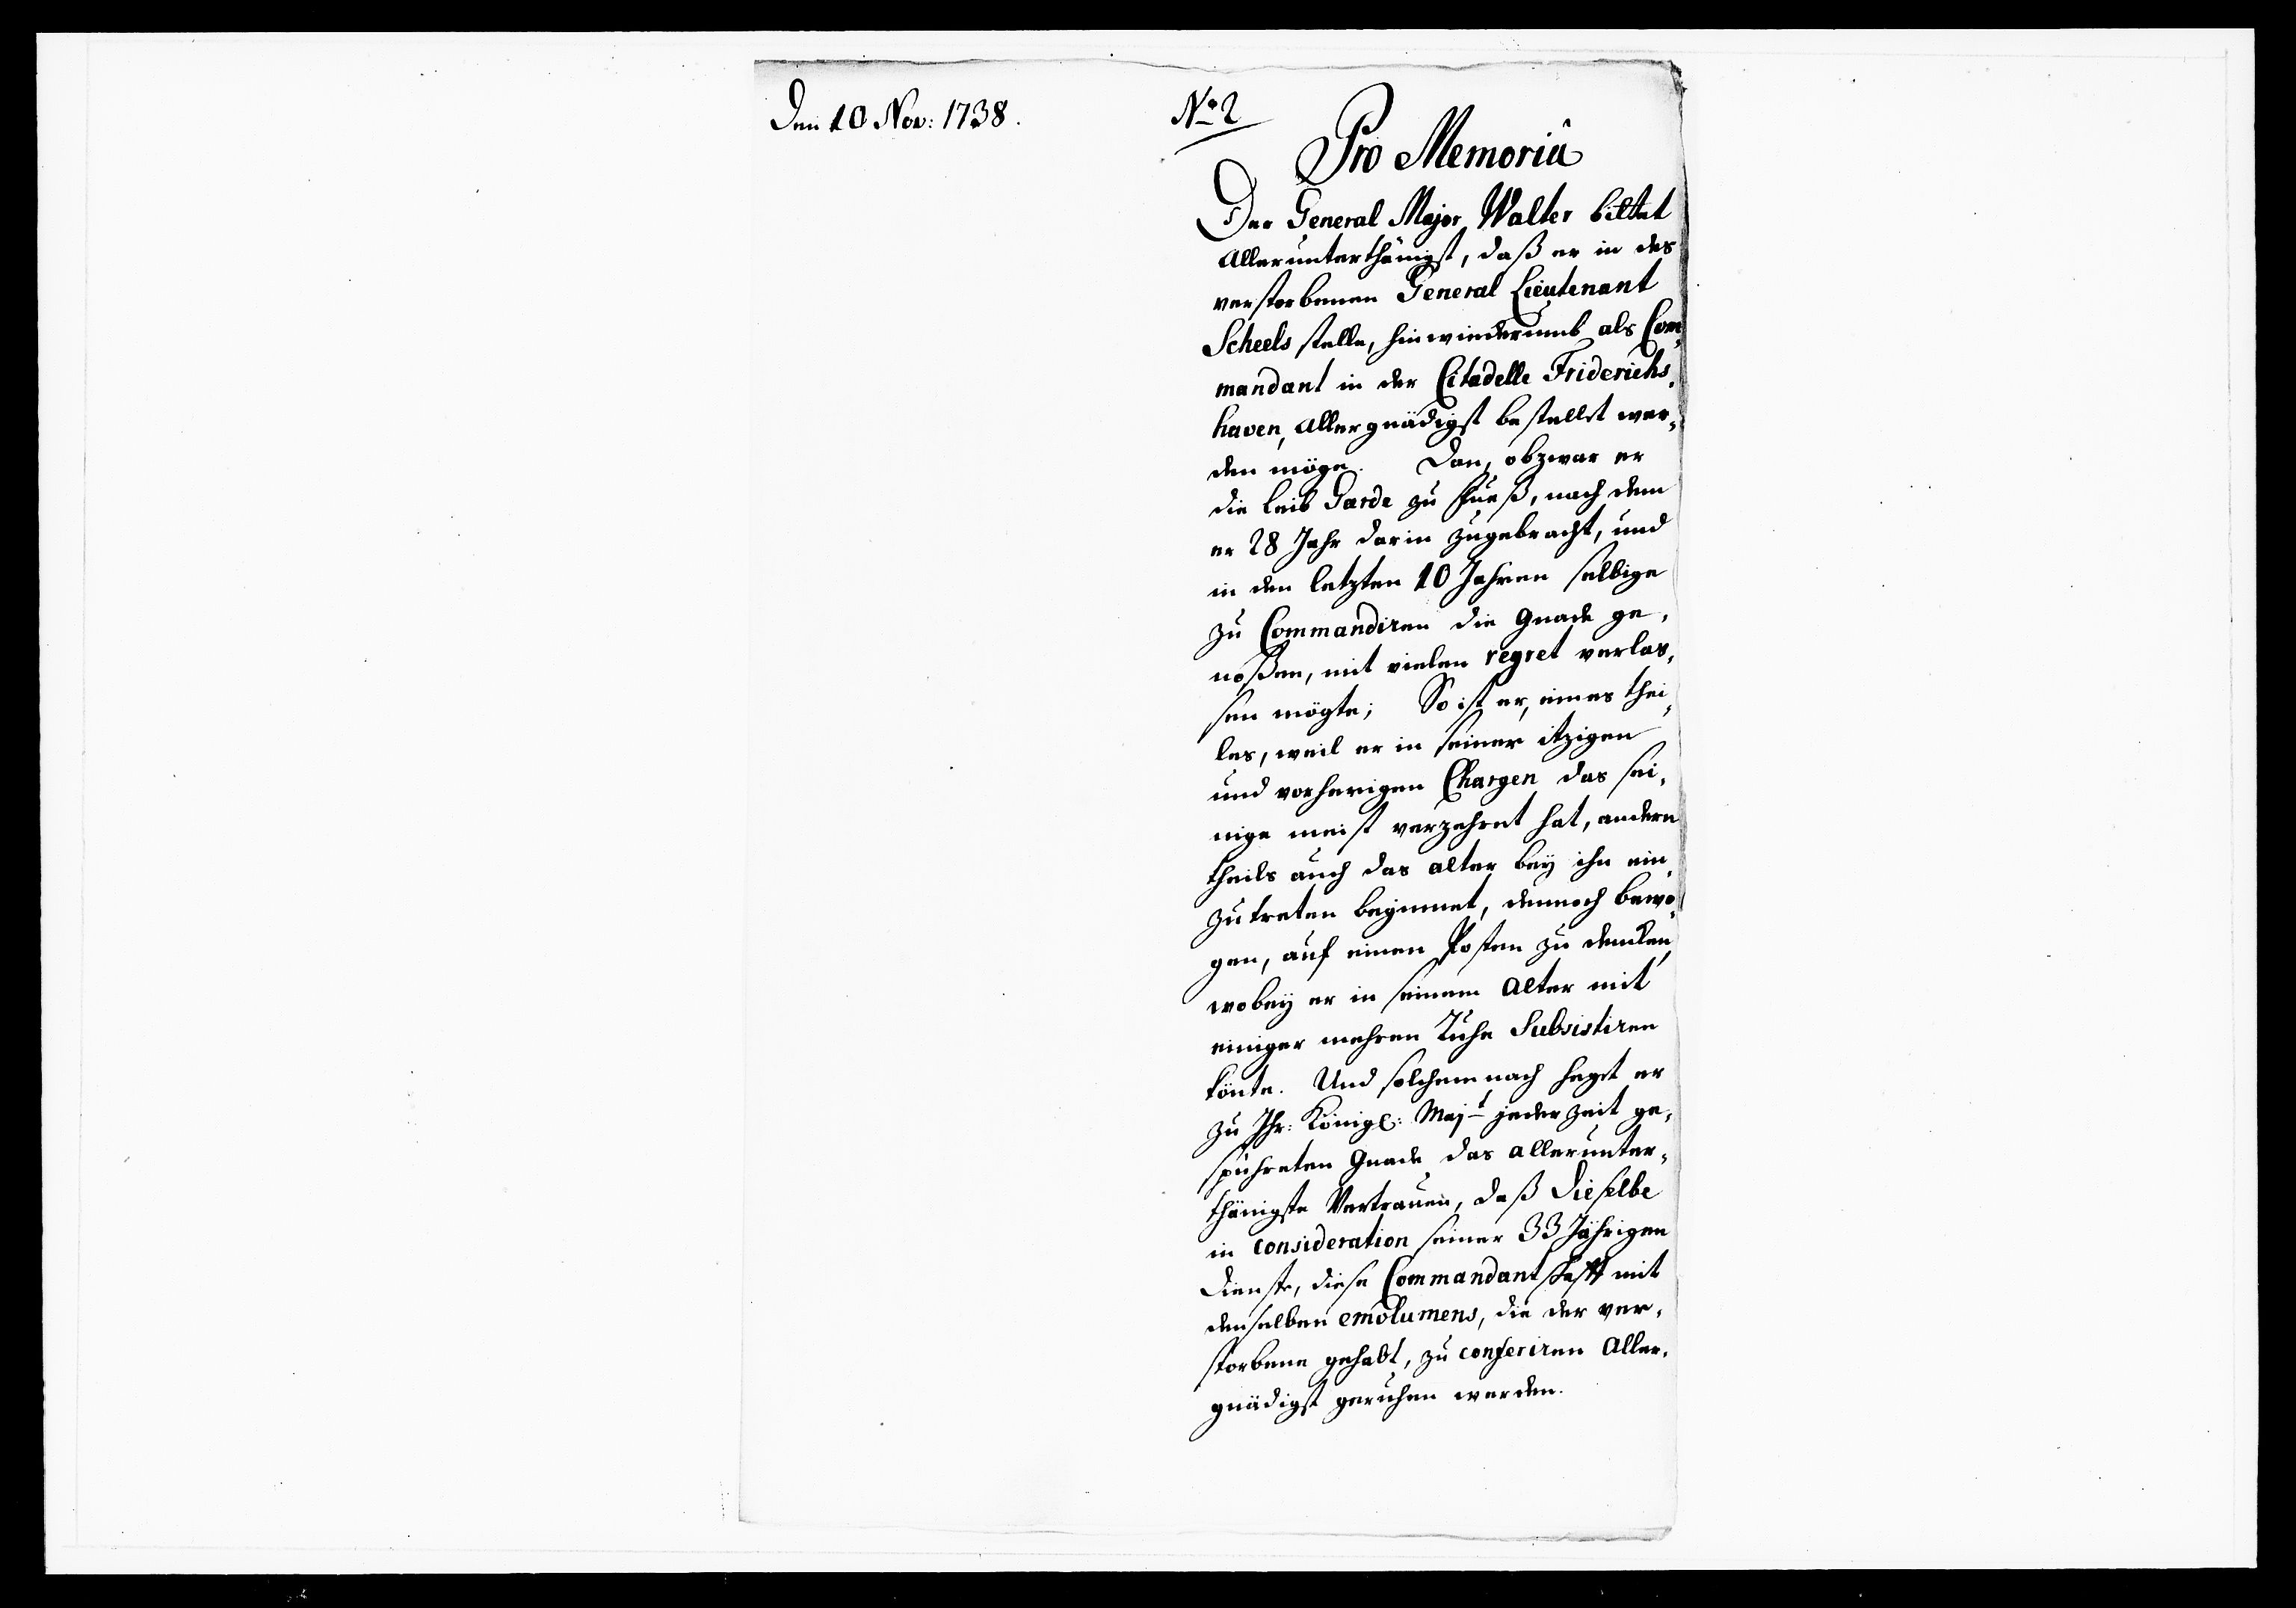 Den 10 Nov: 1738.
No 2
Pro Memoriâ
Der General Major Walter bittet
Allerunterthänigst, daß er in des
verstorbenen General Lieutenant
Scheels stelle, hinwiederumb als Com,
mandant in der Citadelle Friderichs,
haven, Allergnädigst bestellet wer,
den möge. Dan, obzwar er
die Leib Garde zu Fueß, nach dem
er 28 Jahr darin zugebracht, und
in den letzten 10 Jahren selbige
zu Commandiren die Gnade ge,
noßen, mit vielen regret verlas,
sen mögte; So ist er, eines thei,
les, weil er in seiner itzigen
und vorherigen Chargen das sei,
nige meist verzehret hat, andern
theils auch das alter bey ihn ein,
zutreten beginnet, dennoch bewo,
gen, auf einen Posten zu dencken,
wobey er in seinem Alter mit
einiger mehren Ruhe Subsistiren
könte. Und solchem nach heget er
zu Ihr: Königl: Majt jederzeit ge,
spührten Gnade das allerunter,
thänigste Vertrauen, daß dieselbe
in consideration seiner 33 Jährigen
Dienste, diese Commandantschafft mit
denselben emolumens, die der ver,
storbene gehabt, zu conferiren Aller,
gnädigst geruhen werden.